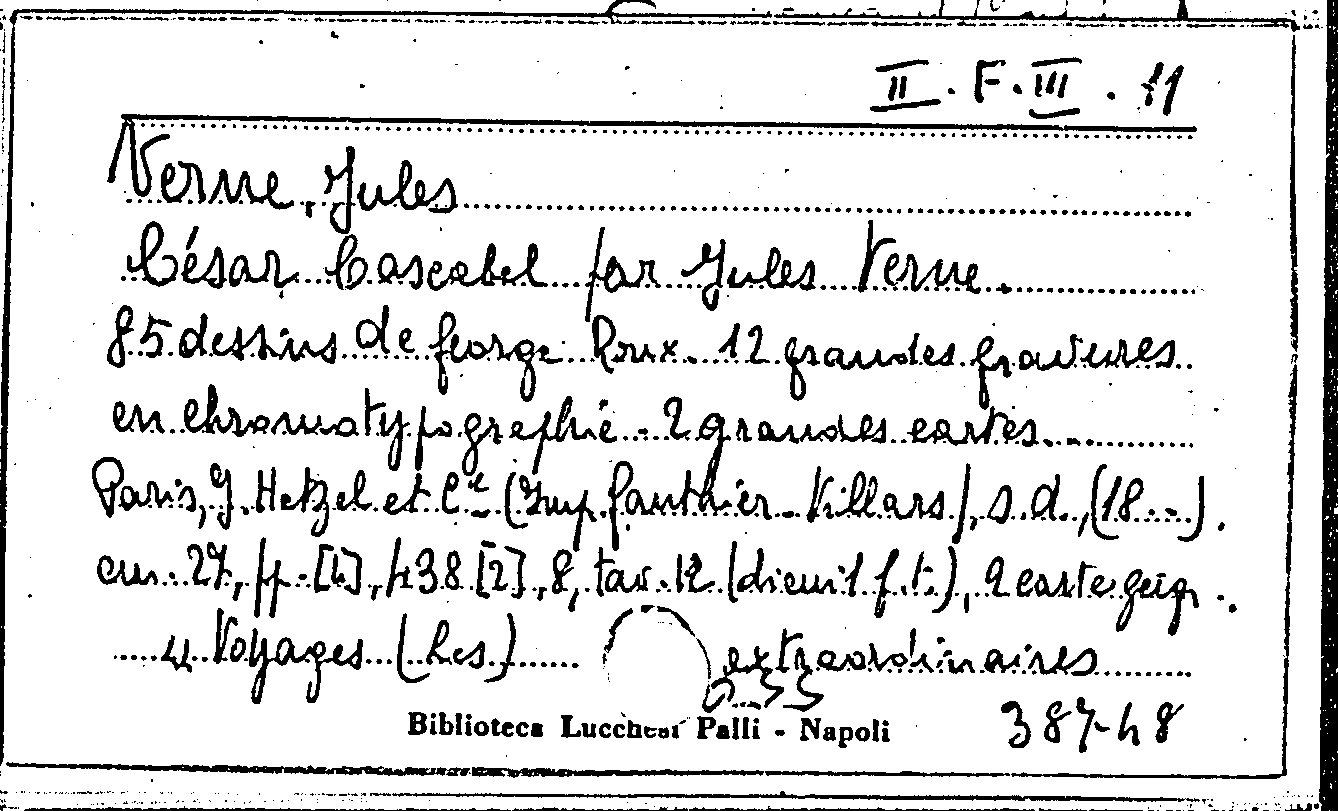 II. F. III. 11
Verne, Jules
César Cascabel par Jules Verne.
85 dessins de George Roux. 12 grandes gravures
en chromatypographie - 2 grandes cartes...
Paris, J. Hetzel et C.ie (Imp. Gauthier-Villars), s. d., (18--).
cm. 27, pp. [4], 438 [2], 8, tav. 12 (di cui 1 f. t.), 2 carte geogr.
Voyages (Les) extraordinaires
Biblioteca Lucchesi Palli - Napoli 387-48